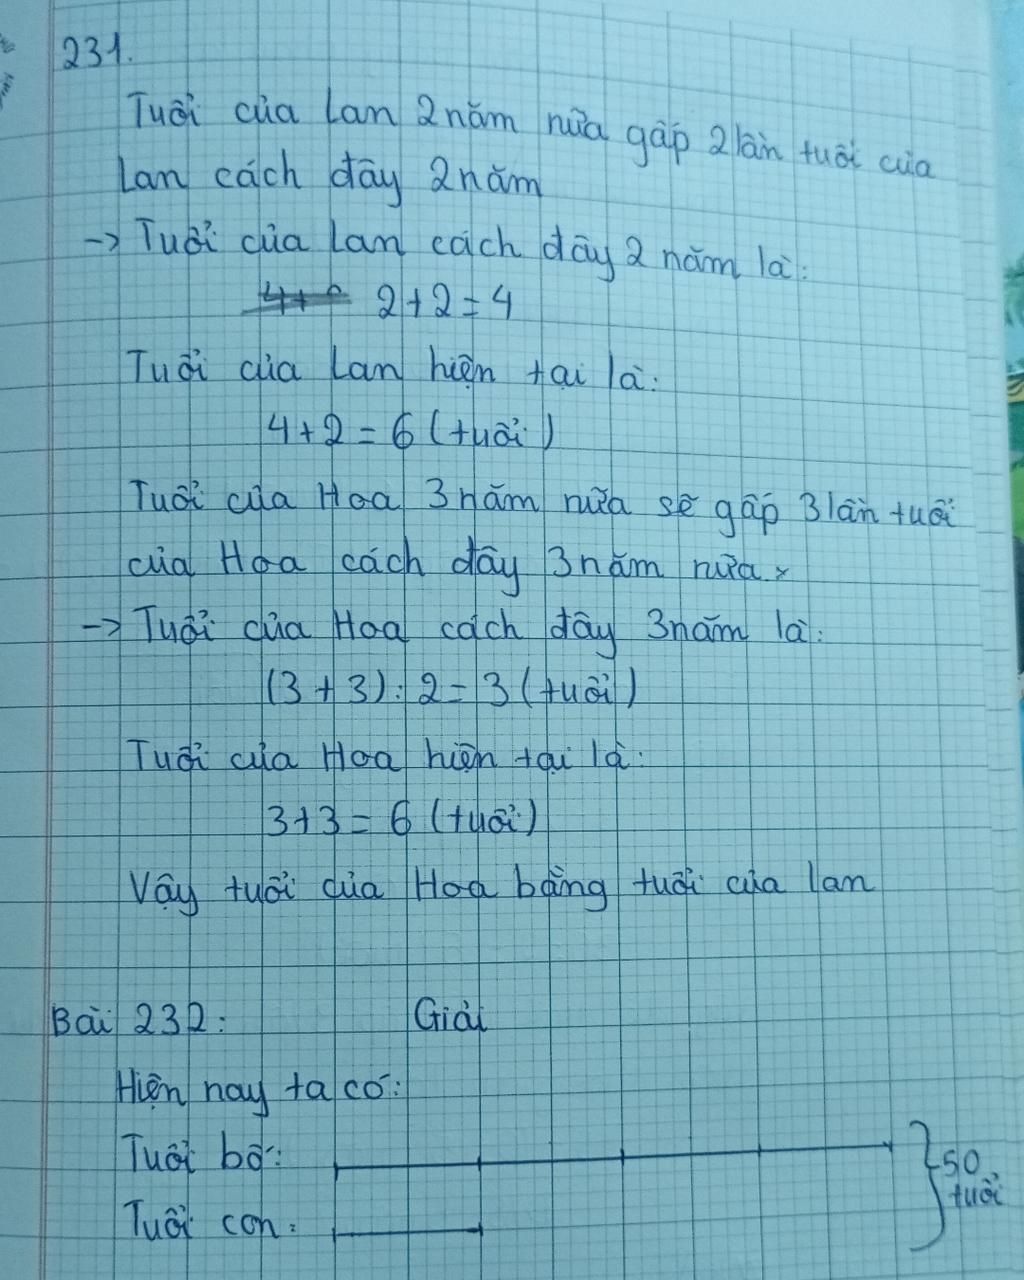 231.
Tuổi của Lan 2 năm nữa gấp 2 lần tuổi của
Lan cách đây 2 năm
-> Tuổi của Lan cách đây 2 năm là:
2+2=4
Tuổi của Lan hiện tại là:
4+2=6 (tuổi)
Tuổi của Hoa 3 năm nữa sẽ gấp 3 lần tuổi
của Hoa cách đây 3 năm nữa
-> Tuổi của Hoa cách đây 3 năm là:
(3+3):2=3 (tuổi)
Tuổi của Hoa hiện tại là:
3+3=6 (tuổi)
Vậy tuổi của Hoa bằng tuổi của lan
Bài 232: Giải
Hiện nay ta có:
Tuổi bố:
50
tuổi
Tuổi con: